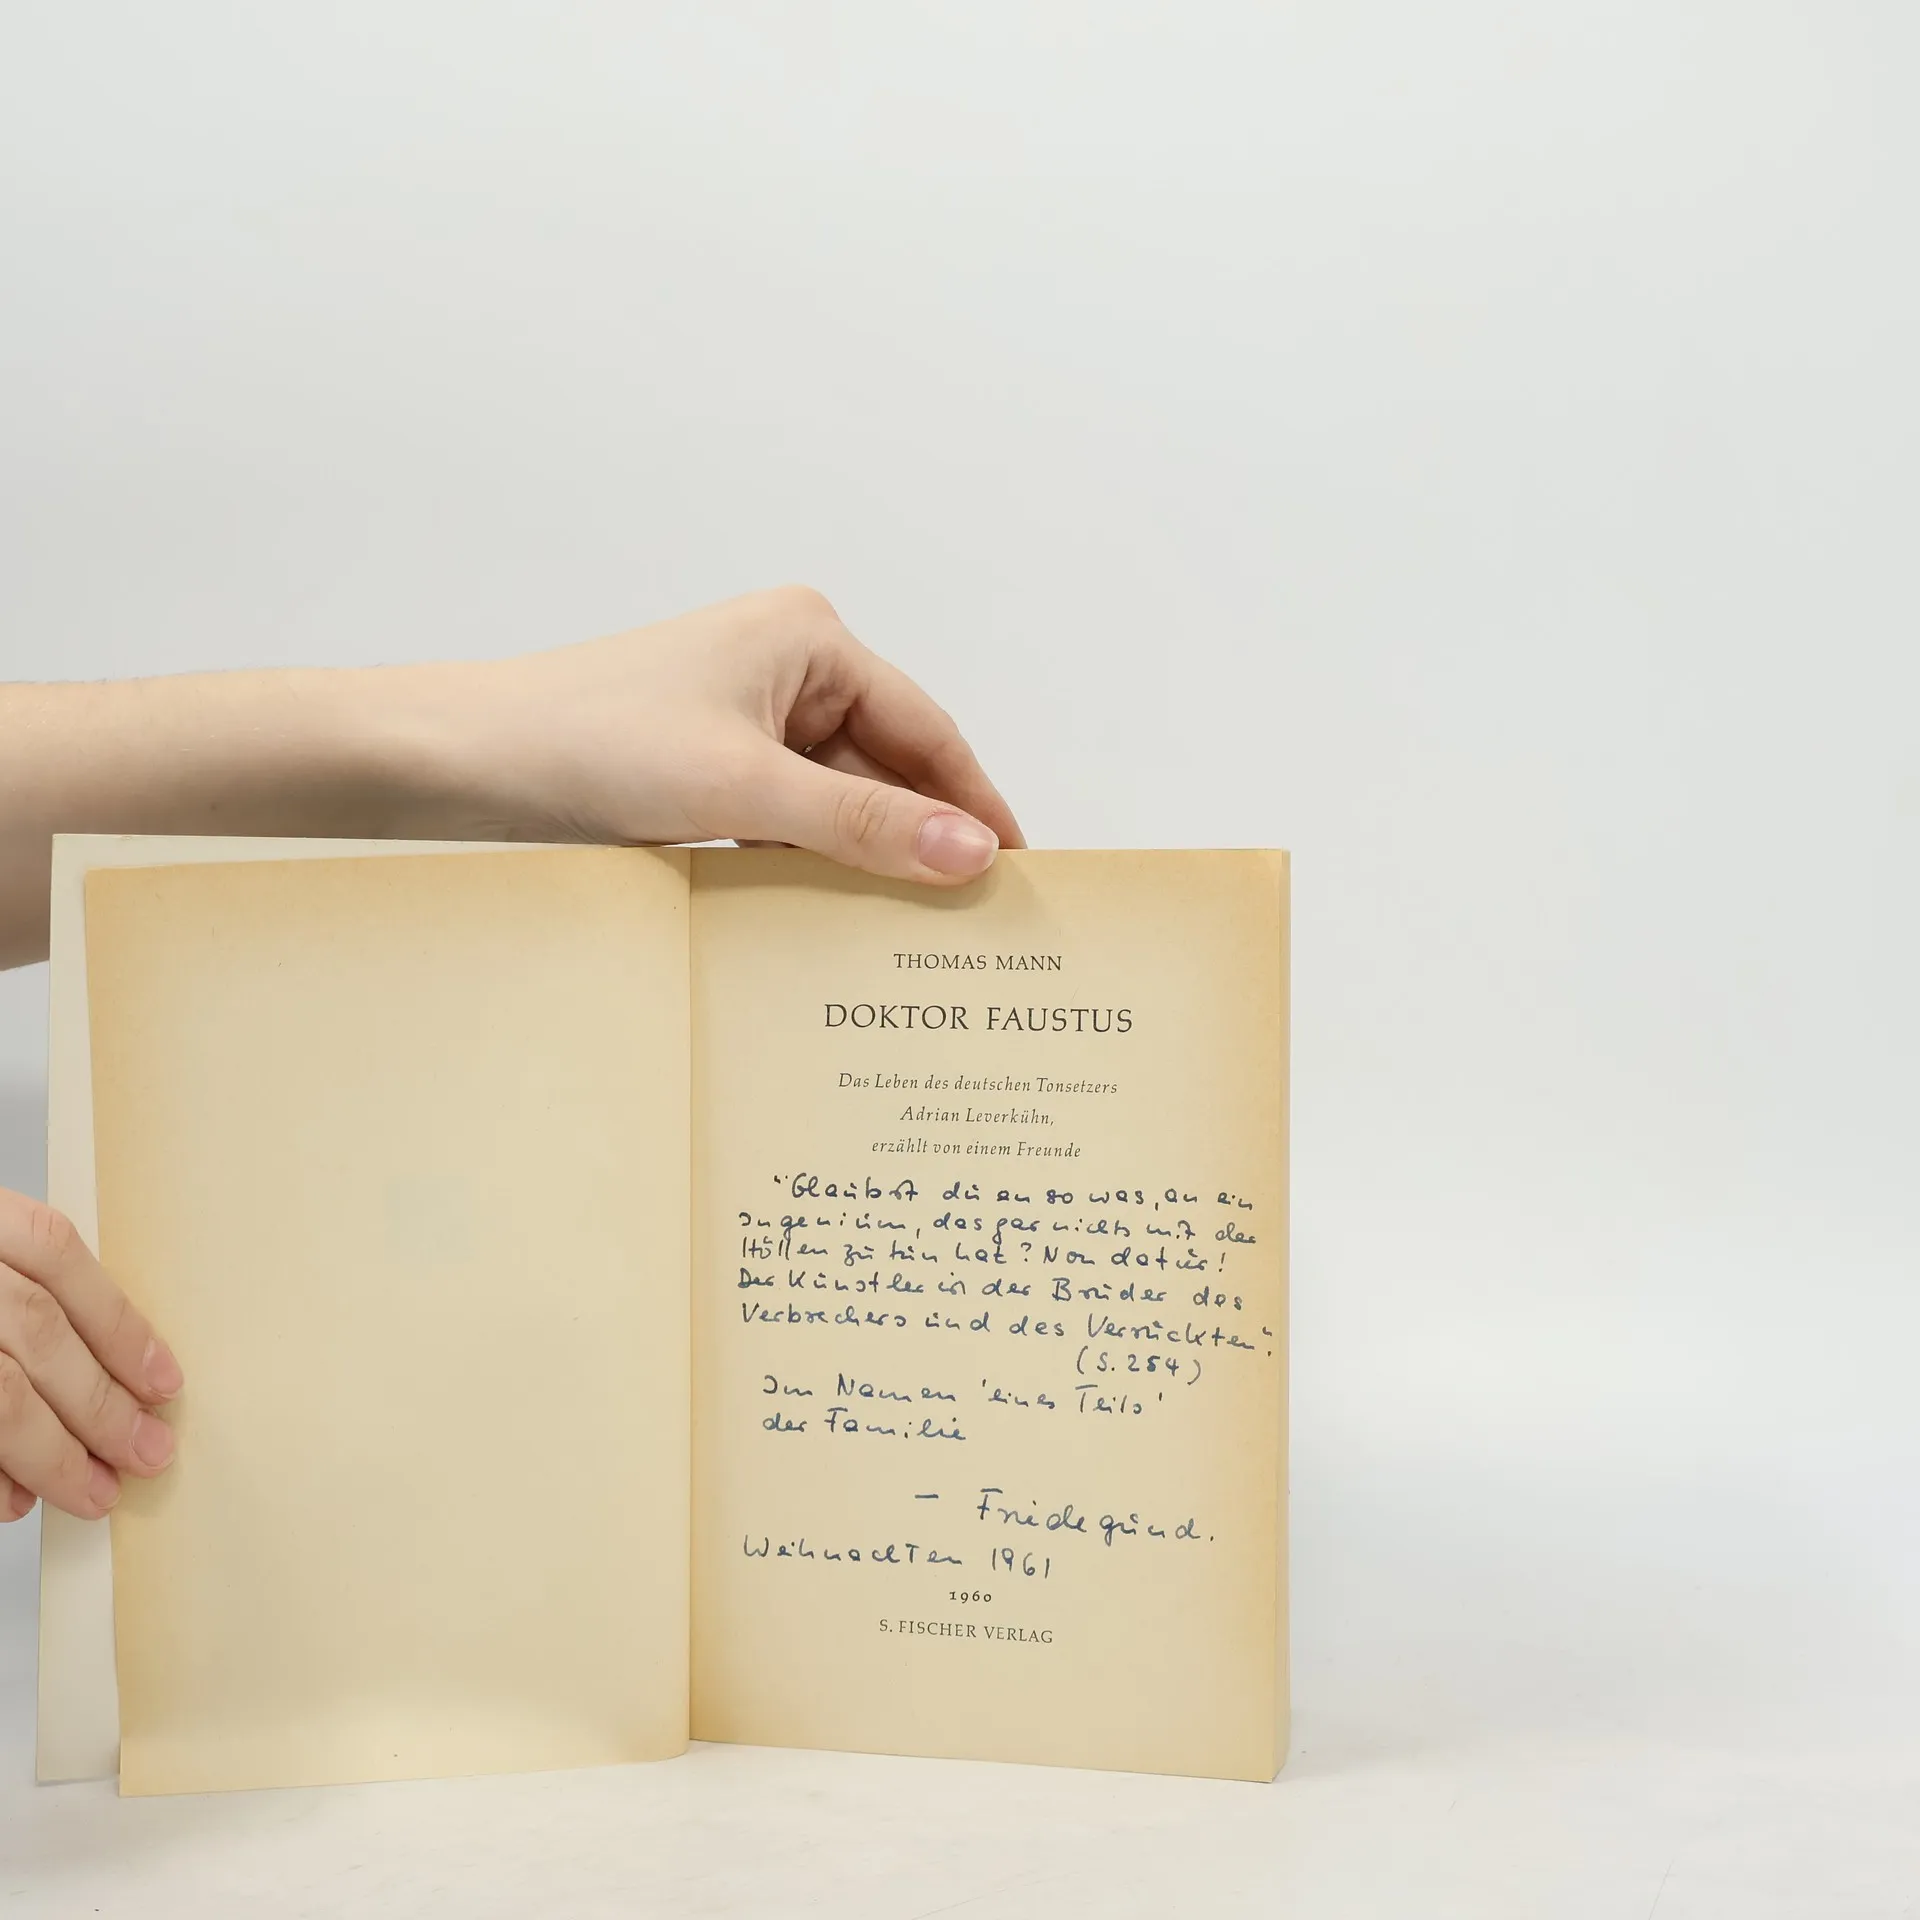 THOMAS MANN
DOKTOR FAUSTUS
Das Leben des deutschen Tonsetzers
Adrian Leverkühn,
erzählt von einem Freunde
"Glaubst du an so was, an ein
Ingenium, das gar nichts mit der
Höllen zu tun hat? Non datur!
Der Künstler ist der Bruder des
Verbrechers und des Verrückten".
(S. 254)
Im Namen 'eines Teils'
der Familie
– Friedegund.
Weihnachten 1961
1960
S. FISCHER VERLAG